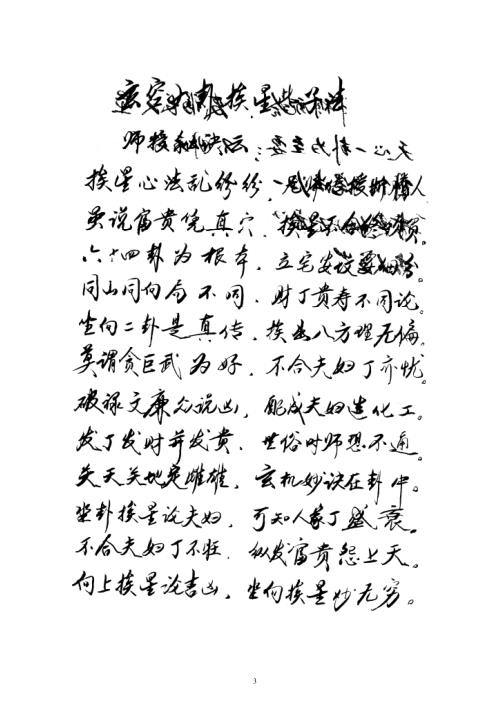 玄空大卦挨星
师授秘诀云:
挨星心法乱纷纷,
莫说富贵凭真穴,挨星不合终
六十四卦为根本,立宅安坟要细分
同山同向局不同,财丁贵寿不同论。
坐向二卦是真传,挨出八方理无偏。
莫谓贪巨武为好,不合夫妇丁亦忧。
破禄文廉众说凶,配成夫妇造化工。
发丁发财并发贵,世俗时师想不通。
关天关地定雌雄,玄机妙诀在卦中。
坐卦挨星论夫妇,可知人家丁盛衰。
不合夫妇丁不旺,纵发富贵怨上天。
向上挨星论吉凶,坐向挨星妙无穷。
3